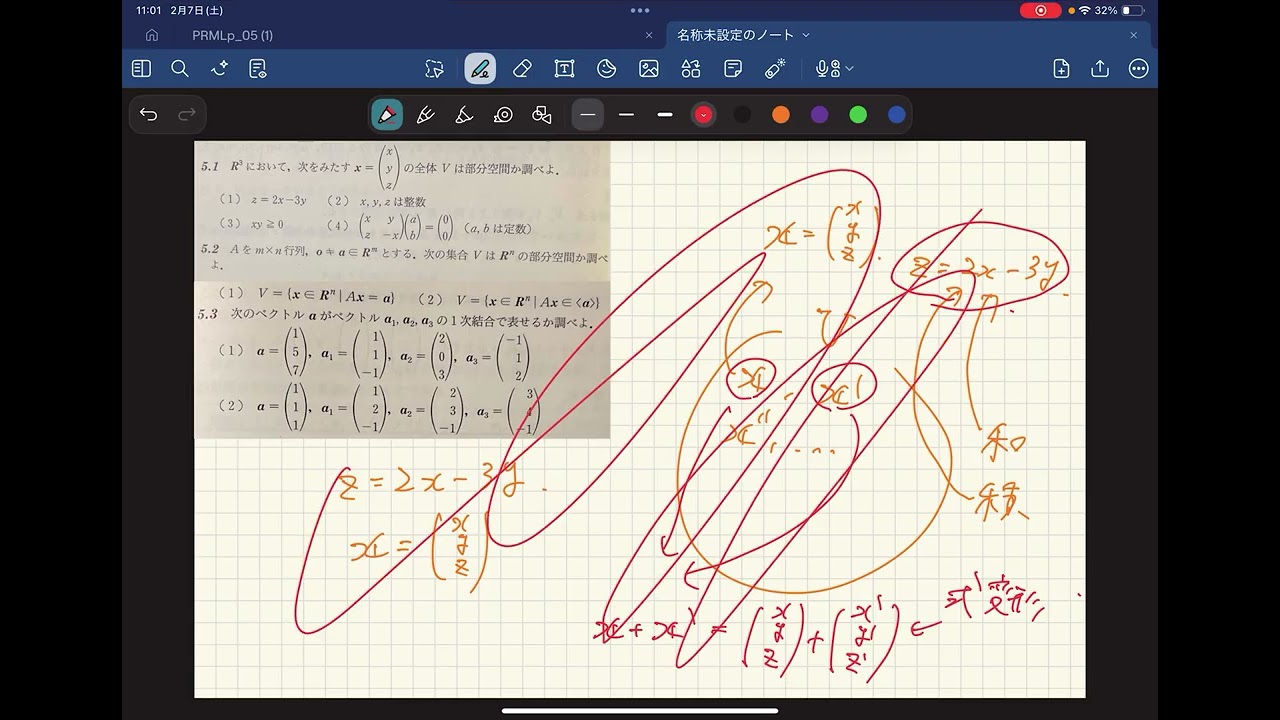 11:01 2月7日(土)
32%
PRMLp_05 (1)
名称未設定のノート
5.1 R³において，次をみたす x = (x y z) の全体 V は部分空間か調べよ．
(1) z = 2x−3y (2) x, y, z は整数
(3) xy ≧ 0 (4) (x y z −x)(a b) = (0 0) (a, b は定数)
5.2 A を m×n 行列，o ≠ a ∈ Rᵐ とする．次の集合 V は Rⁿ の部分空間か調べよ．
(1) V = {x ∈ Rⁿ | Ax = a} (2) V = {x ∈ Rⁿ | Ax ∈ ⟨a⟩}
5.3 次のベクトル a がベクトル a₁, a₂, a₃ の1次結合で表せるか調べよ．
(1) a = (1 5 7), a₁ = (1 1 −1), a₂ = (2 0 3), a₃ = (−1 1 2)
(2) a = (1 1 1), a₁ = (1 2 −1), a₂ = (2 3 −1), a₃ = (3 4 −1)
z = 2x − 3y.
x = (x y z)
x = (x y z).
z = 2x − 3y.
V
x x'
x'' ...
和
積
x + x' = (x y z) + (x' y' z') ← 式変形